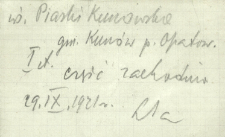 wś. Piaski Kunowskie
gm. Kunów p. Opatow.
I st. część zachodnia
29.IX.1921 r.